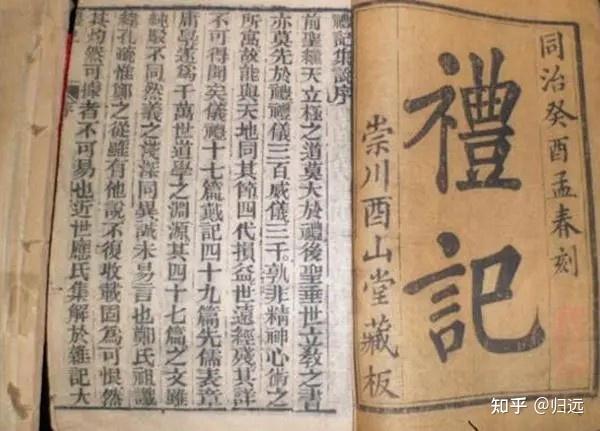 同治癸酉孟春刻
禮記
崇川酉山堂藏板
禮記集說序
前聖繼天立極之道莫大於禮後聖垂世立教之書
亦莫先於禮禮儀三百威儀三千孰非精神心術之
所寓故能與天地同其節四代損益世遠經殘其詳
不可得聞矣儀禮十七篇戴記四十九篇先儒表章
庸學遂爲千萬世道學之淵源其四十七篇之文雖
純駁不同然義之淺深同異誠未易言也鄭氏祖讖
緯孔疏惟鄭之從雖有他說不復收載固爲可恨然
其灼然可據者不可易也近世應氏集解於雜記大
知乎 @归远